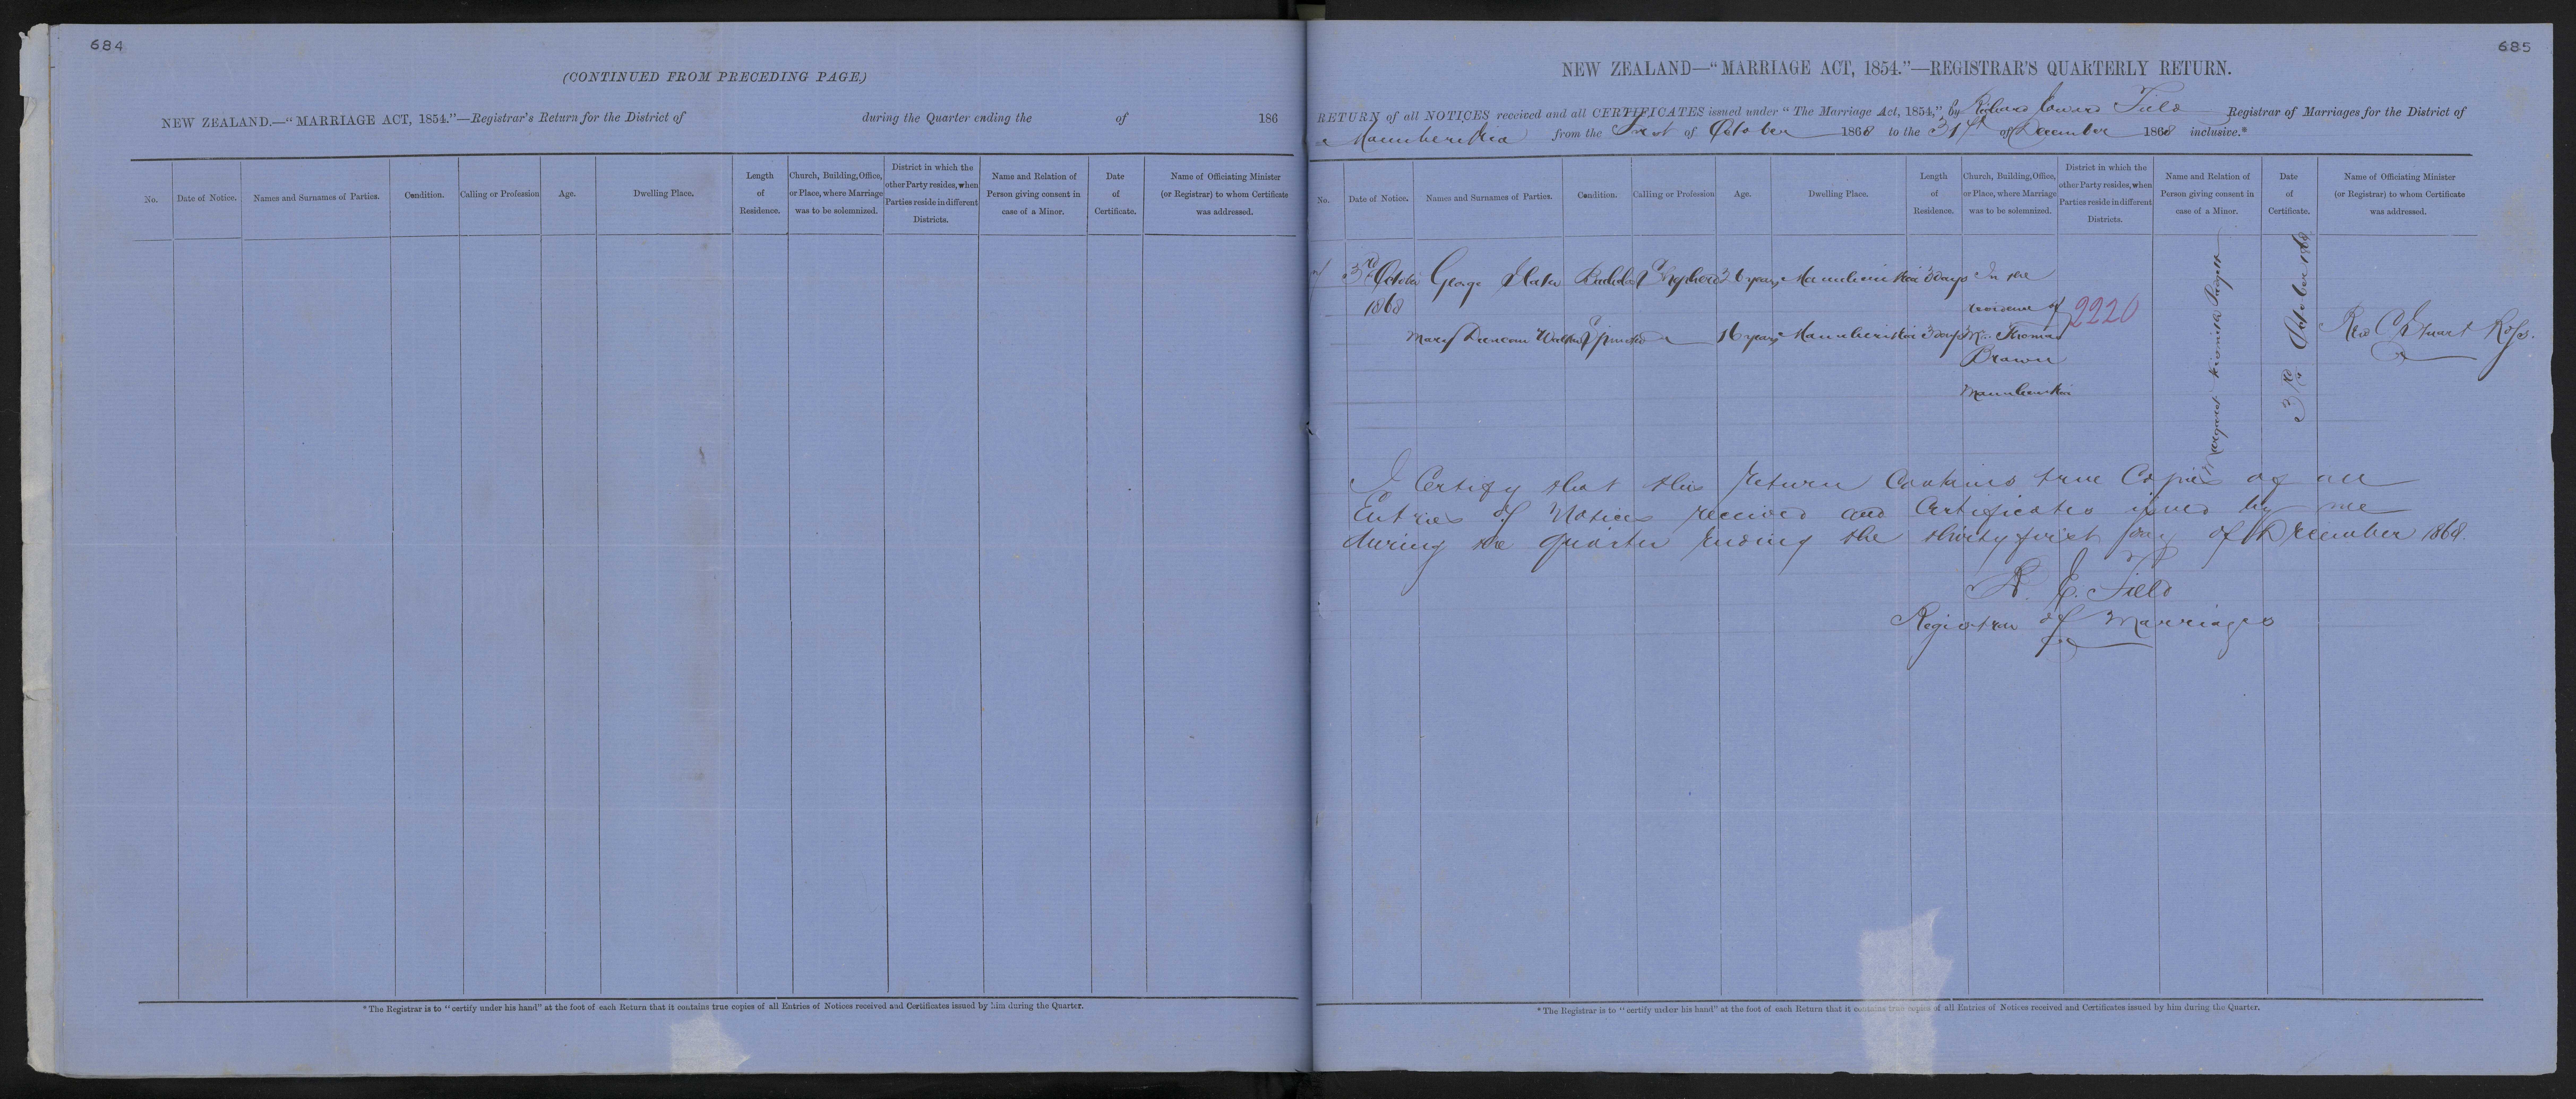 684
(CONTINUED FROM PRECEDING PAGE.)
NEW ZEALAND.—"MARRIAGE ACT, 1854."—Registrar's Return for the District of during the Quarter ending the of 186
No.
Date of Notice.
Names and Surnames of Parties.
Condition.
Calling or Profession
Age.
Dwelling Place.
Length
of
Residence.
Church, Building, Office,
or Place, where Marriage
was to be solemnized.
District in which the
other Party resides, when
Parties reside in different
Districts.
Name and Relation of
Person giving consent in
case of a Minor.
Date
of
Certificate.
Name of Officiating Minister
(or Registrar) to whom Certificate
was addressed.
*The Registrar is to "certify under his hand" at the foot of each Return that it contains true copies of all Entries of Notices received and Certificates issued by him during the Quarter.
685
NEW ZEALAND—"MARRIAGE ACT, 1854."—REGISTRAR'S QUARTERLY RETURN.
RETURN of all NOTICES received and all CERTIFICATES issued under "The Marriage Act, 1854," by Richard Edward Field Registrar of Marriages for the District of
Manuherikia from the First of October 1868 to the 31st of December 1868 inclusive.*
No.
Date of Notice.
Names and Surnames of Parties.
Condition.
Calling or Profession
Age.
Dwelling Place.
Length
of
Residence.
Church, Building, Office,
or Place, where Marriage
was to be solemnized.
District in which the
other Party resides, when
Parties reside in different
Districts.
Name and Relation of
Person giving consent in
case of a Minor.
Date
of
Certificate.
Name of Officiating Minister
(or Registrar) to whom Certificate
was addressed.
3rd October George Slater Bachelor Shepherd 36 years Manuherikia 3 days In the
1868 residence of 2220
Mary Duncan Walker Spinster 16 years Manuherikia 3 days Mr Thomas
Brown
Manuherikia
Margaret
3rd October 1868
Rev C Stuart Ross.
I Certify that this return Contains true Copies of all
Entries of Notices received and Certificates issued by me
during the Quarter ending the thirty first day of December 1868.
R. E. Field
Registrar of Marriages
*The Registrar is to "certify under his hand" at the foot of each Return that it contains true copies of all Entries of Notices received and Certificates issued by him during the Quarter.